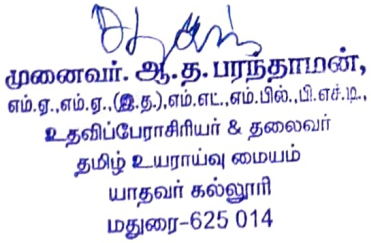 முனைவர். ஆ.த. பரந்தாமன்,
எம்.ஏ.,எம்.ஏ.,(இ.த.),எம்.எட்.,எம்.பில்.,பி.எச்.டி.,
உதவிப்பேராசிரியர் & தலைவர்
தமிழ் உயராய்வு மையம்
யாதவர் கல்லூரி
மதுரை-625 014